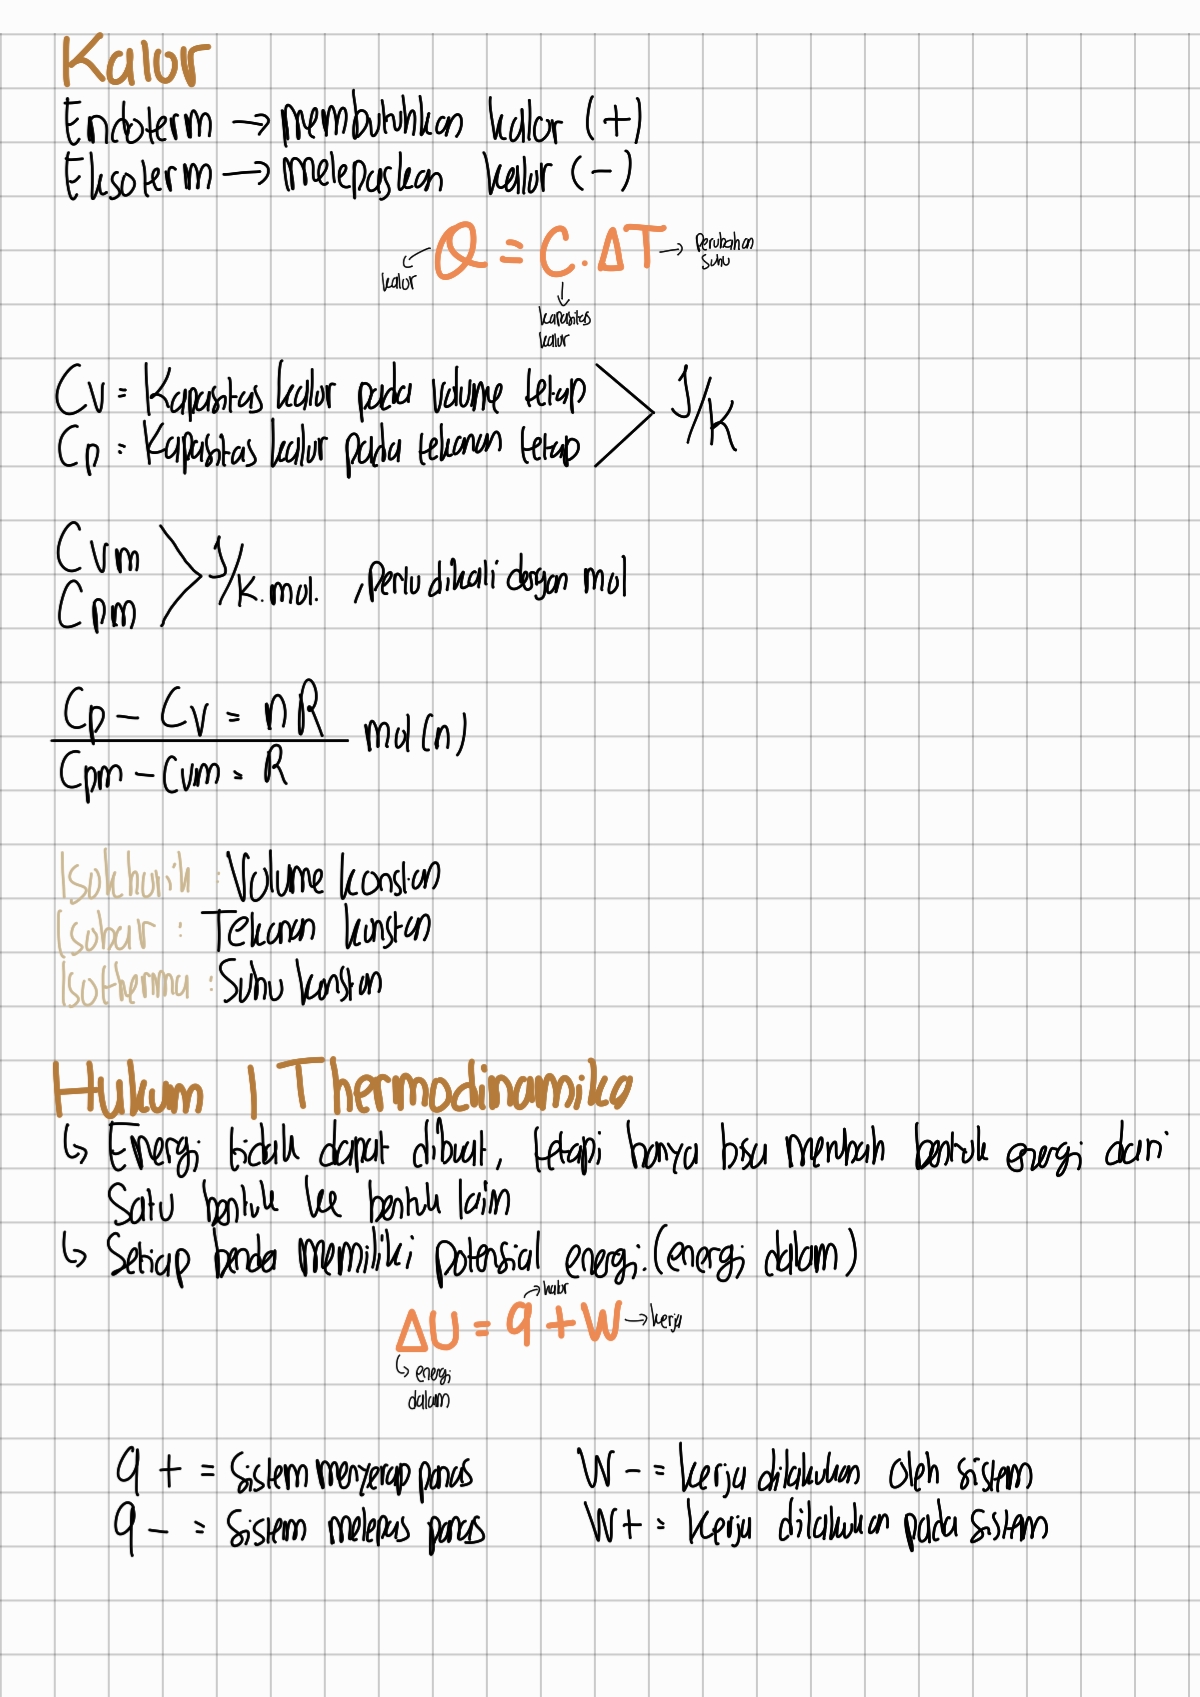 Kalor
Endoterm → membutuhkan kalor (+)
Eksoterm → melepaskan kalor (-)
Q = C . ΔT → Perubahan suhu
kalor
kapasitas
kalor
Cv = Kapasitas kalor pada volume tetap
J/K
Cp = Kapasitas kalor pada tekanan tetap
Cvm
J/K.mol. , perlu dikali dengan mol
Cpm
Cp - Cv = nR
mol (n)
Cpm - Cvm = R
Isokhorik : Volume konstan
Isobar : Tekanan konstan
Isotherma : Suhu konstan
Hukum 1 Thermodinamika
↳ Energi tidak dapat dibuat, tetapi hanya bisa merubah bentuk energi dari
Satu bentuk ke bentuk lain
↳ Setiap benda memiliki potensial energi. (energi dalam)
→ kalor
ΔU = q + W → kerja
↳ energi
dalam
q + = Sistem menyerap panas W - = kerja dilakukan oleh sistem
q - = Sistem melepas panas W + = kerja dilakukan pada sistem